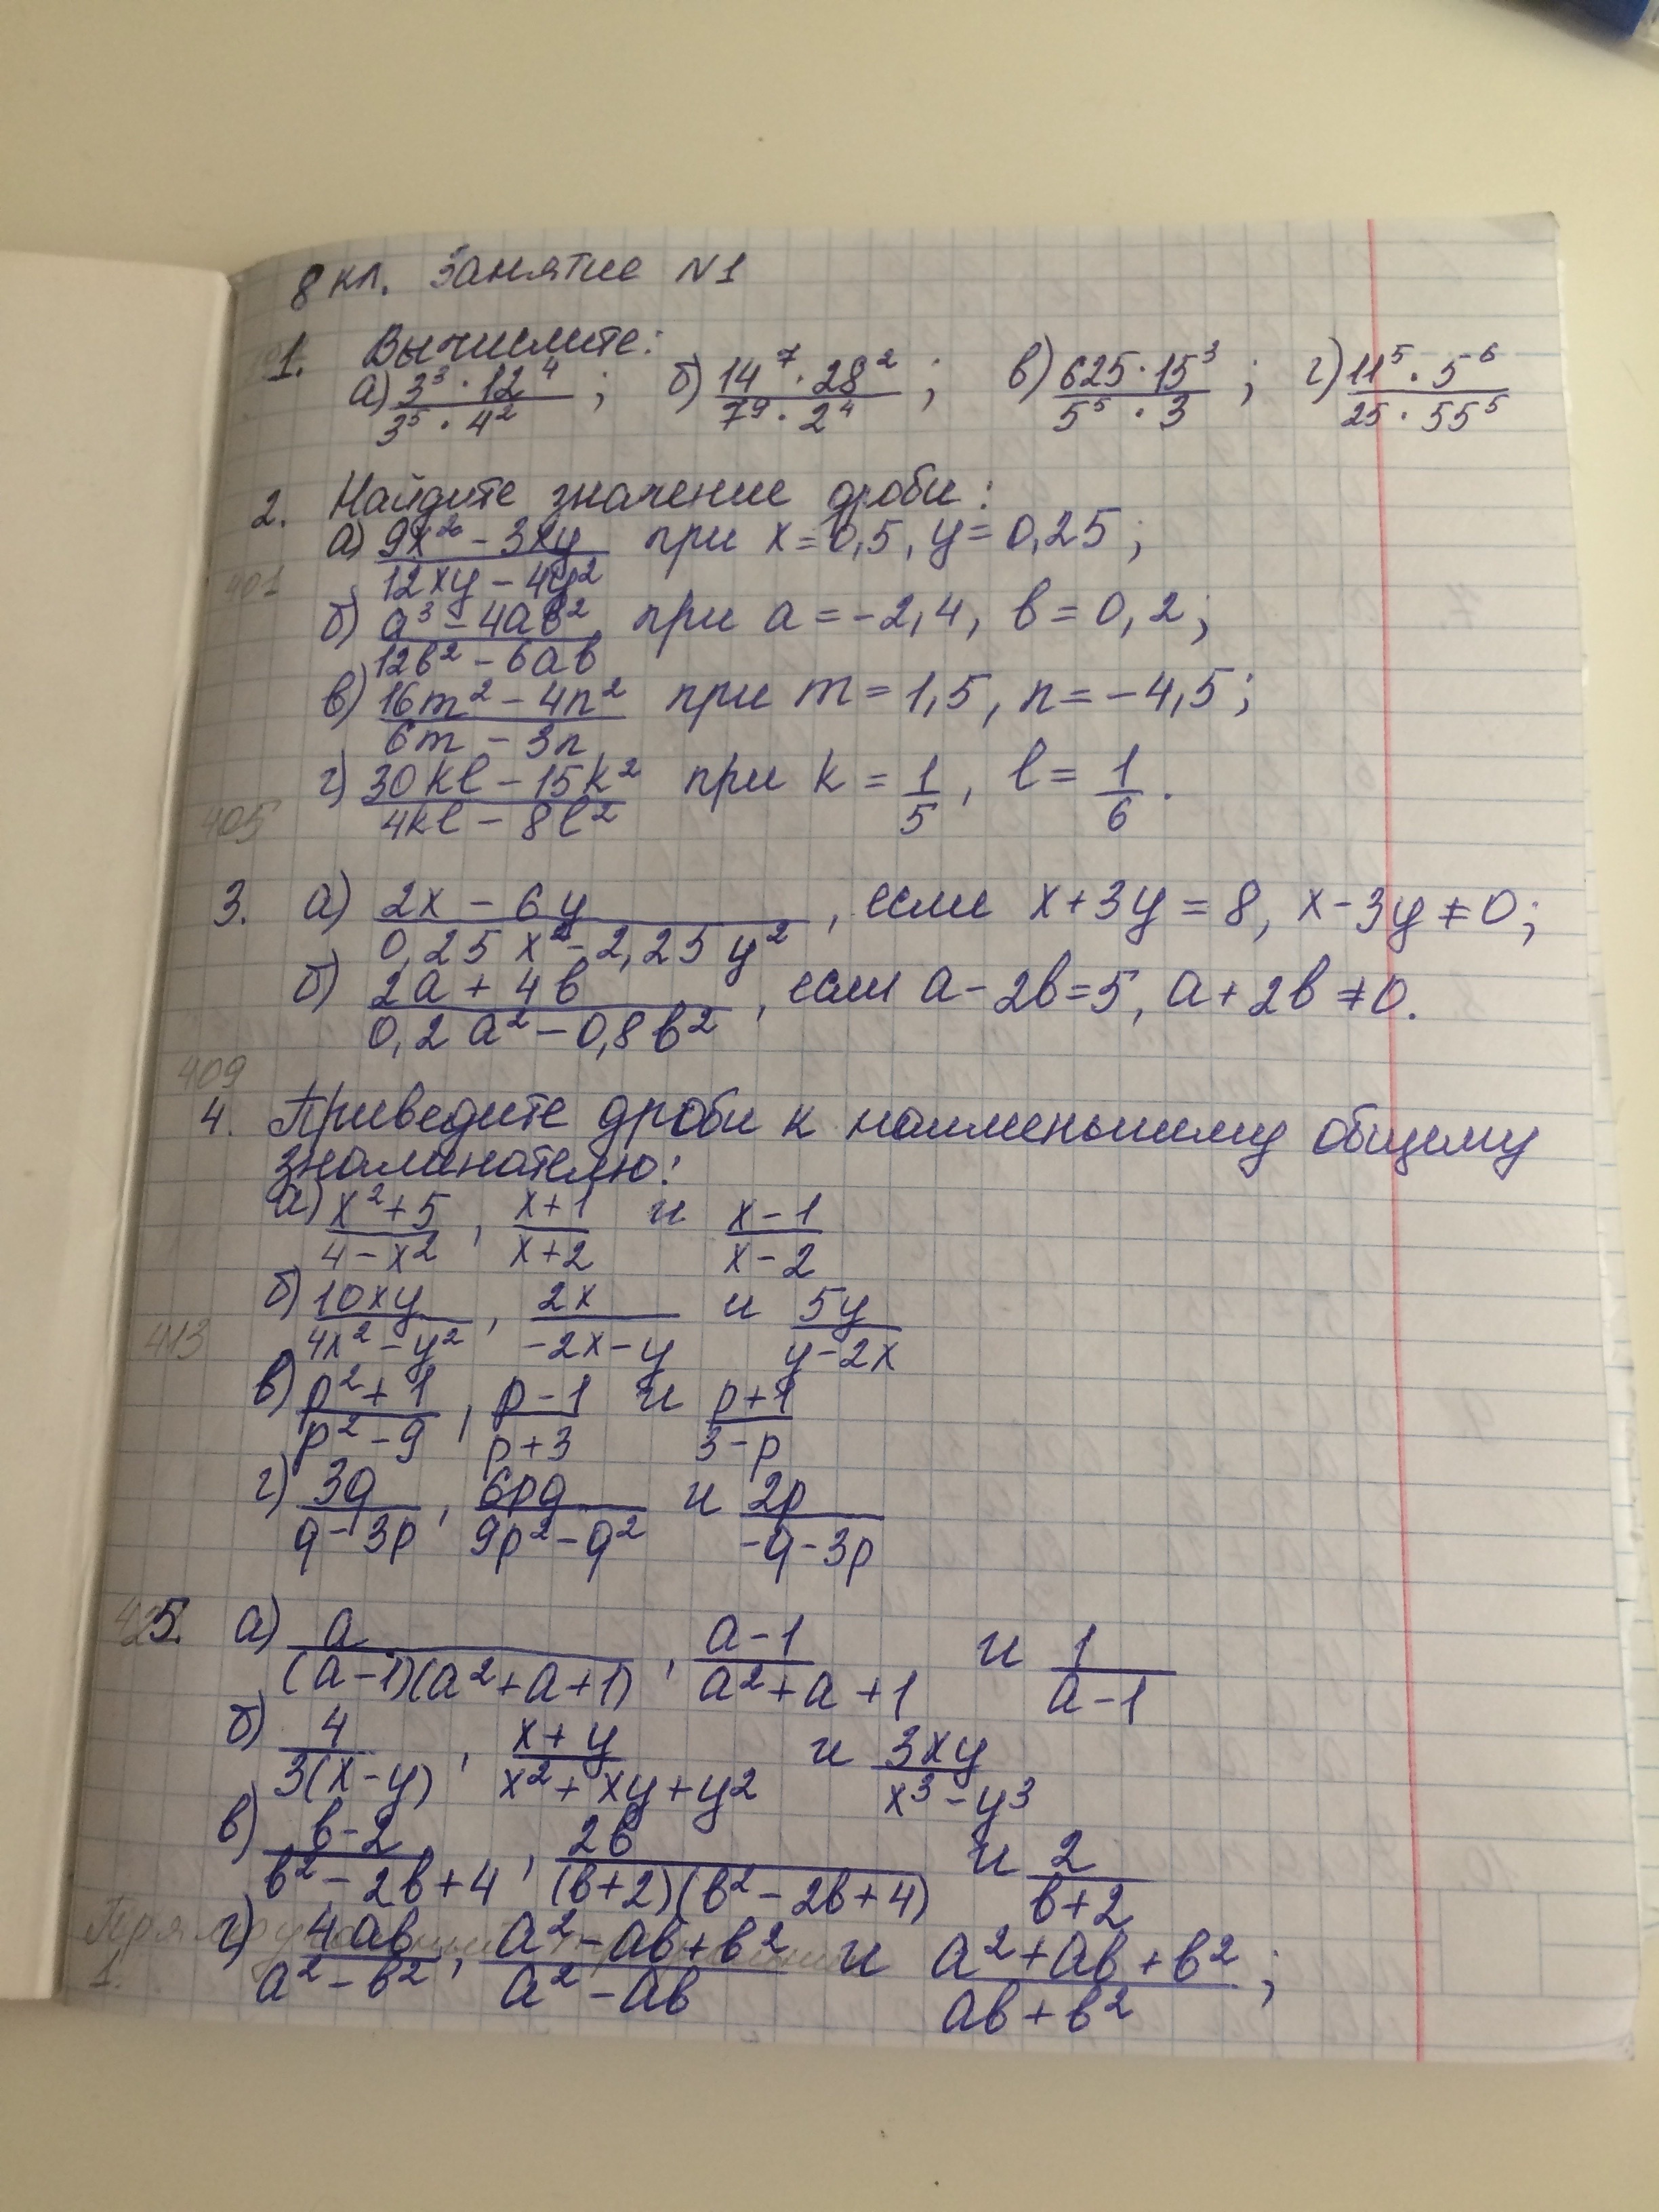 8 кл. Занятие N1
1. Вычислите:
а) 3³·12⁴ / 3⁵·4² ; б) 14⁷·28² / 7⁹·2⁴ ; в) 625·15³ / 5⁵·3 ; г) 11⁵·5⁶ / 25·55⁵
2. Найдите значение дроби:
а) 9x² - 3xy / 12xy - 4y² при x = 0,5, y = 0,25;
401
б) a³ - 4ab² / 12b² - 6ab при a = -2,4, b = 0,2;
в) 16m² - 4n² / 6m - 3n при m = 1,5, n = -4,5;
г) 30kl - 15k² / 4kl - 8l² при k = 1/5, l = 1/6.
405
3. а) 2x - 6y / 0,25x² - 2,25y², если x + 3y = 8, x - 3y ≠ 0;
б) 2a + 4b / 0,2a² - 0,8b², если a - 2b = 5, a + 2b ≠ 0.
409
4. Приведите дроби к наименьшему общему
знаминателю:
а) x² + 5 / 4 - x², x + 1 / x + 2 и x - 1 / x - 2
б) 10xy / 4x² - y², 2x / -2x - y и 5y / y - 2x
413
в) p² + 1 / p² - 9, p - 1 / p + 3 и p + 1 / 3 - p
г) 3q / q - 3p, 6pq / 9p² - q² и 2p / -q - 3p
5. а) a / (a-1)(a²+a+1), a - 1 / a² + a + 1 и 1 / a - 1
б) 4 / 3(x-y), x + y / x² + xy + y² и 3xy / x³ - y³
в) b - 2 / b² - 2b + 4, 2b / (b+2)(b² - 2b + 4) и 2 / b + 2
г) 4ab / a² - b², a² - ab + b² / a² - ab и a² + ab + b² / ab + b² ;
1.